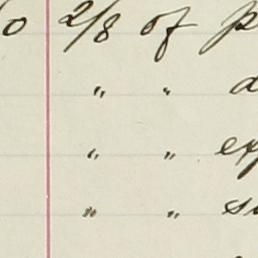 0 2/8 of p
" " a
" " exp
" " su